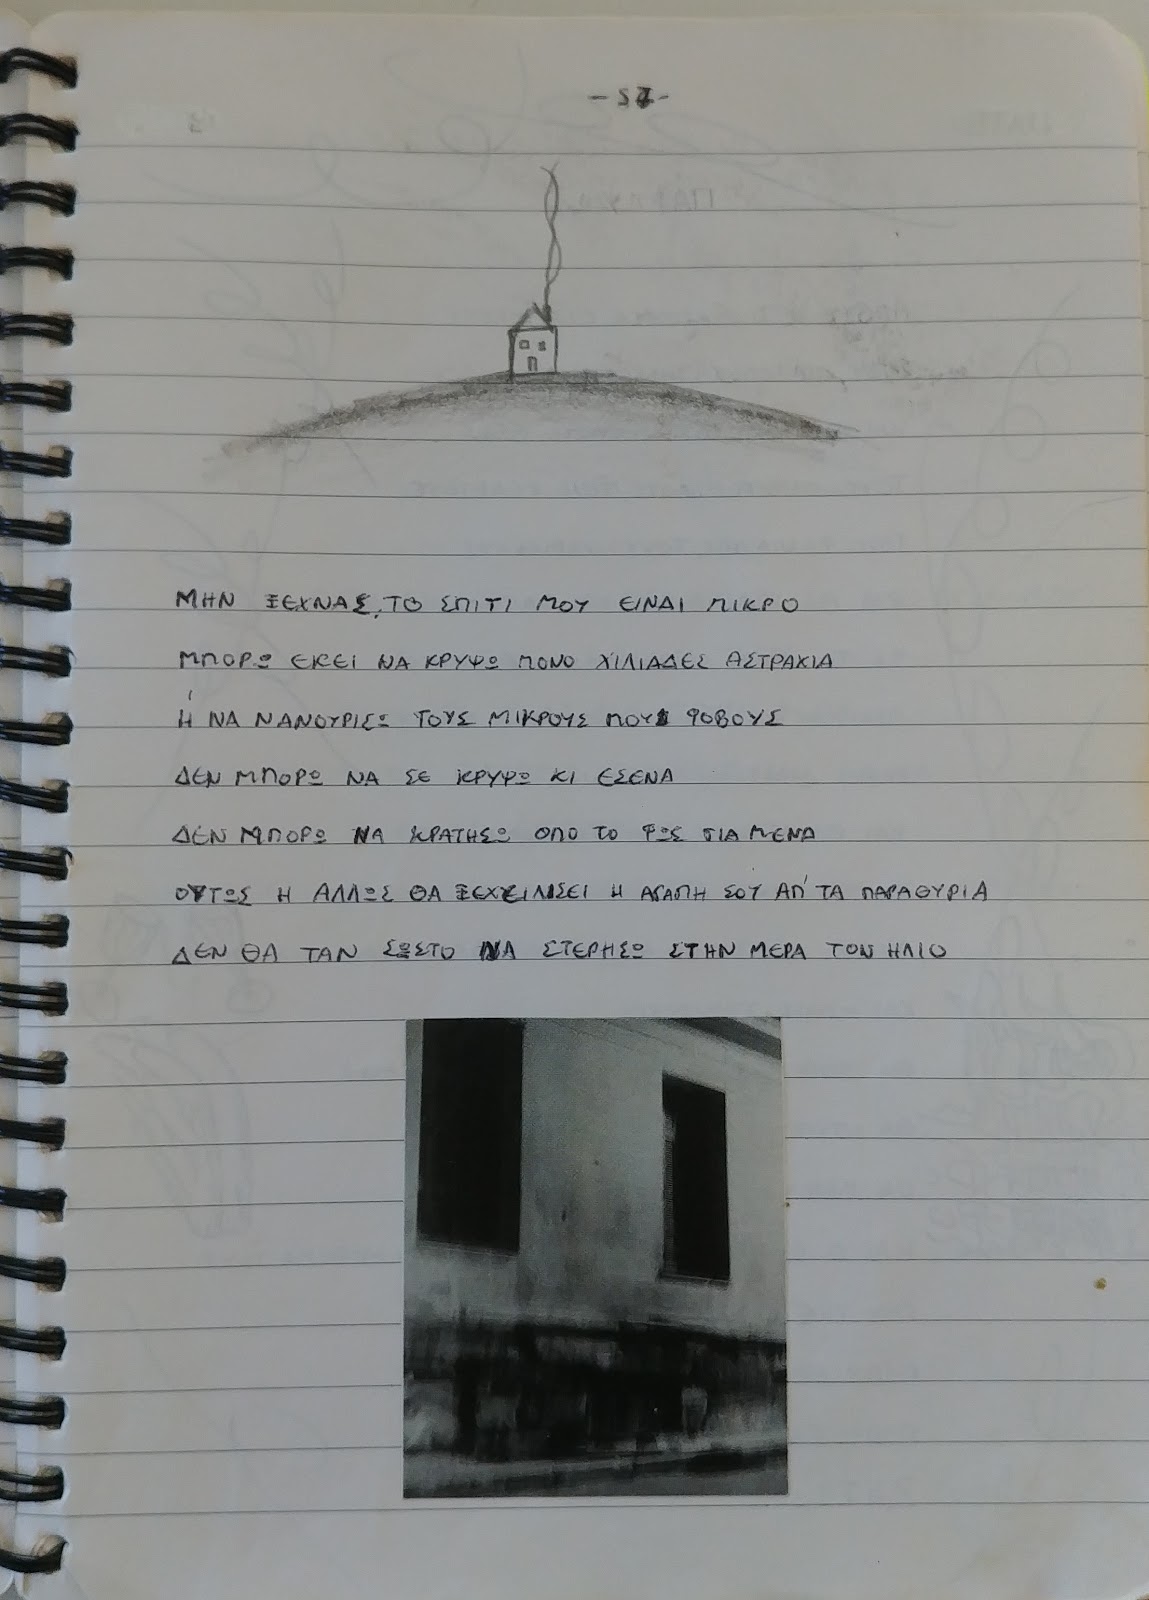 ΜΗΝ ΞΕΧΝΑΣ, ΤΟ ΣΠΙΤΙ ΜΟΥ ΕΙΝΑΙ ΜΙΚΡΟ
ΜΠΟΡΩ ΕΚΕΙ ΝΑ ΚΡΥΨΩ ΜΟΝΟ ΧΙΛΙΑΔΕΣ ΑΣΤΡΑΚΙΑ
Ή ΝΑ ΝΑΝΟΥΡΙΣΩ ΤΟΥΣ ΜΙΚΡΟΥΣ ΜΟΥ ΦΟΒΟΥΣ
ΔΕΝ ΜΠΟΡΩ ΝΑ ΣΕ ΚΡΥΨΩ ΚΙ ΕΣΕΝΑ
ΔΕΝ ΜΠΟΡΩ ΝΑ ΚΡΑΤΗΣΩ ΟΛΟ ΤΟ ΦΩΣ ΓΙΑ ΜΕΝΑ
ΟΥΤΩΣ Η ΑΛΛΩΣ ΘΑ ΞΕΧΕΙΛΙΣΕΙ Η ΑΓΑΠΗ ΣΟΥ ΑΠ' ΤΑ ΠΑΡΑΘΥΡΙΑ
ΔΕΝ ΘΑ ΤΑΝ ΣΩΣΤΟ ΝΑ ΣΤΕΡΗΣΩ ΣΤΗΝ ΜΕΡΑ ΤΟΝ ΗΛΙΟ